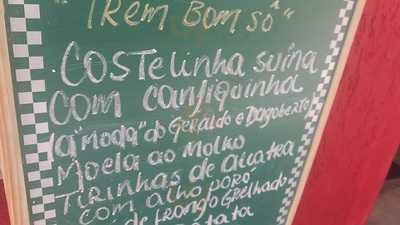 "TREM BOM SÔ"
COSTELINHA SUÍNA
COM CANJIQUINHA
(a "moda" do Geraldo e Dagoberto)
MOELA AO MOLHO
TIRINHAS DE ALCATRA
COM ALHO PORÓ
de FRANGO GRELHADO